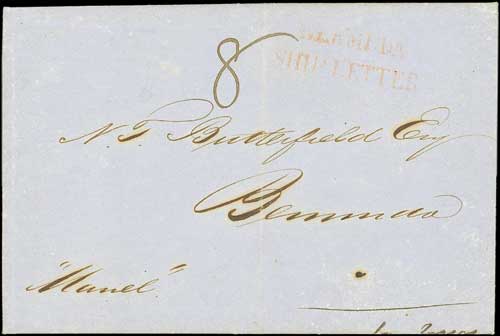 8
BERMUDA
SHIP LETTER
N. T. Butterfield Esq
Bermuda
"Mansel"